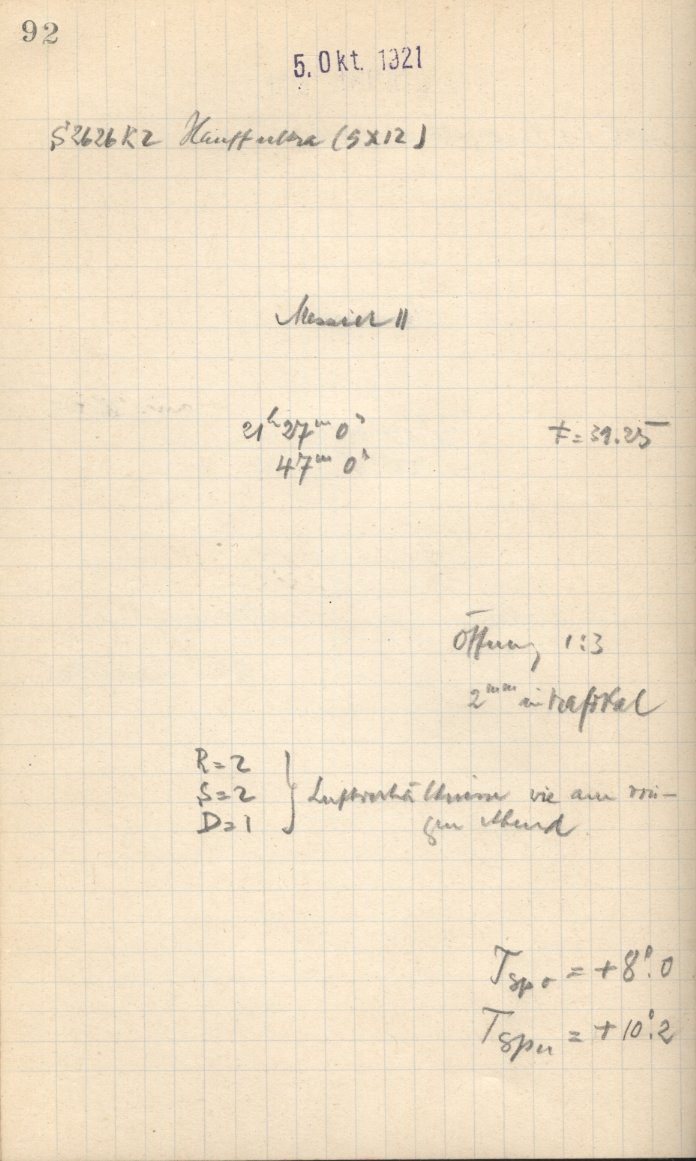 92
5. Okt. 1921
S2626K2 Hauff ultra (9X12)
Messier 11
21ʰ 27ᵐ 0ˢ
47ᵐ 0ˢ
F = 39.25
Öffnung 1:3
2ᵐᵐ intrafokal
R=2
S=2
D=1
Luftverhältnisse wie am vori-
gen Abend
T Sp o = +8°.0
T Sp u = +10°.2